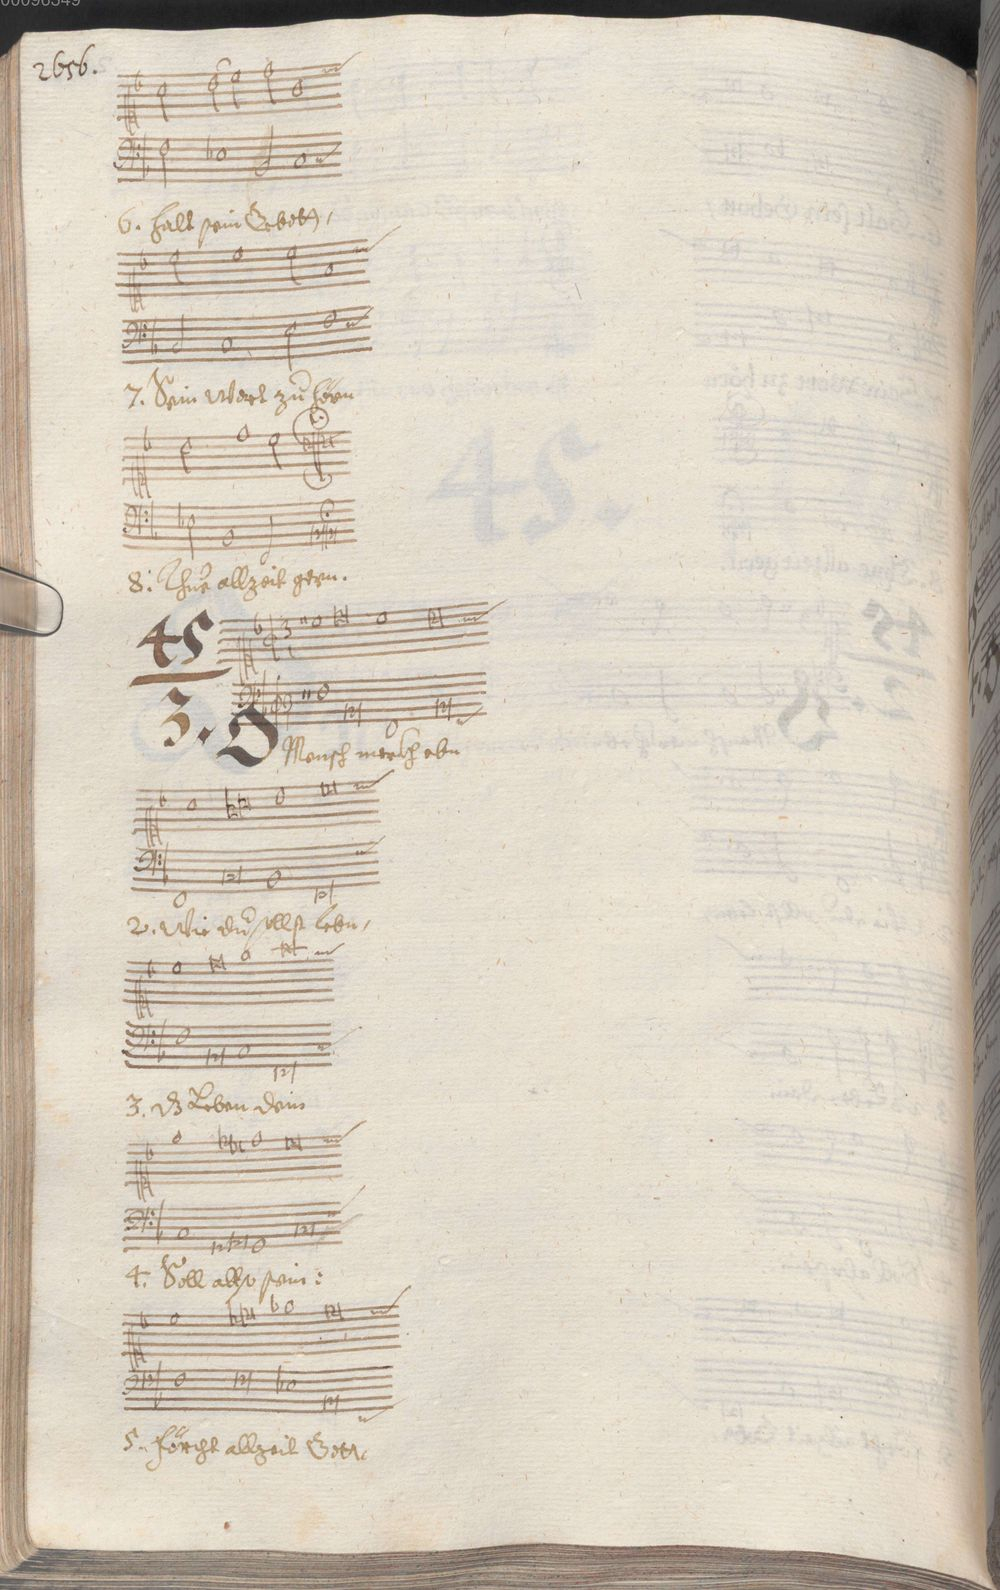 00096349
2656.
6. Halt sein Gebott,
7. Sein Wort zu hörn
8. Thue allzeit gern.
45
3. O Mensch merkh ebn
2. Wie du sollst lebn,
3. dz Leben dein
4. Soll allzo sein:
5. Förcht allzeit Gott,